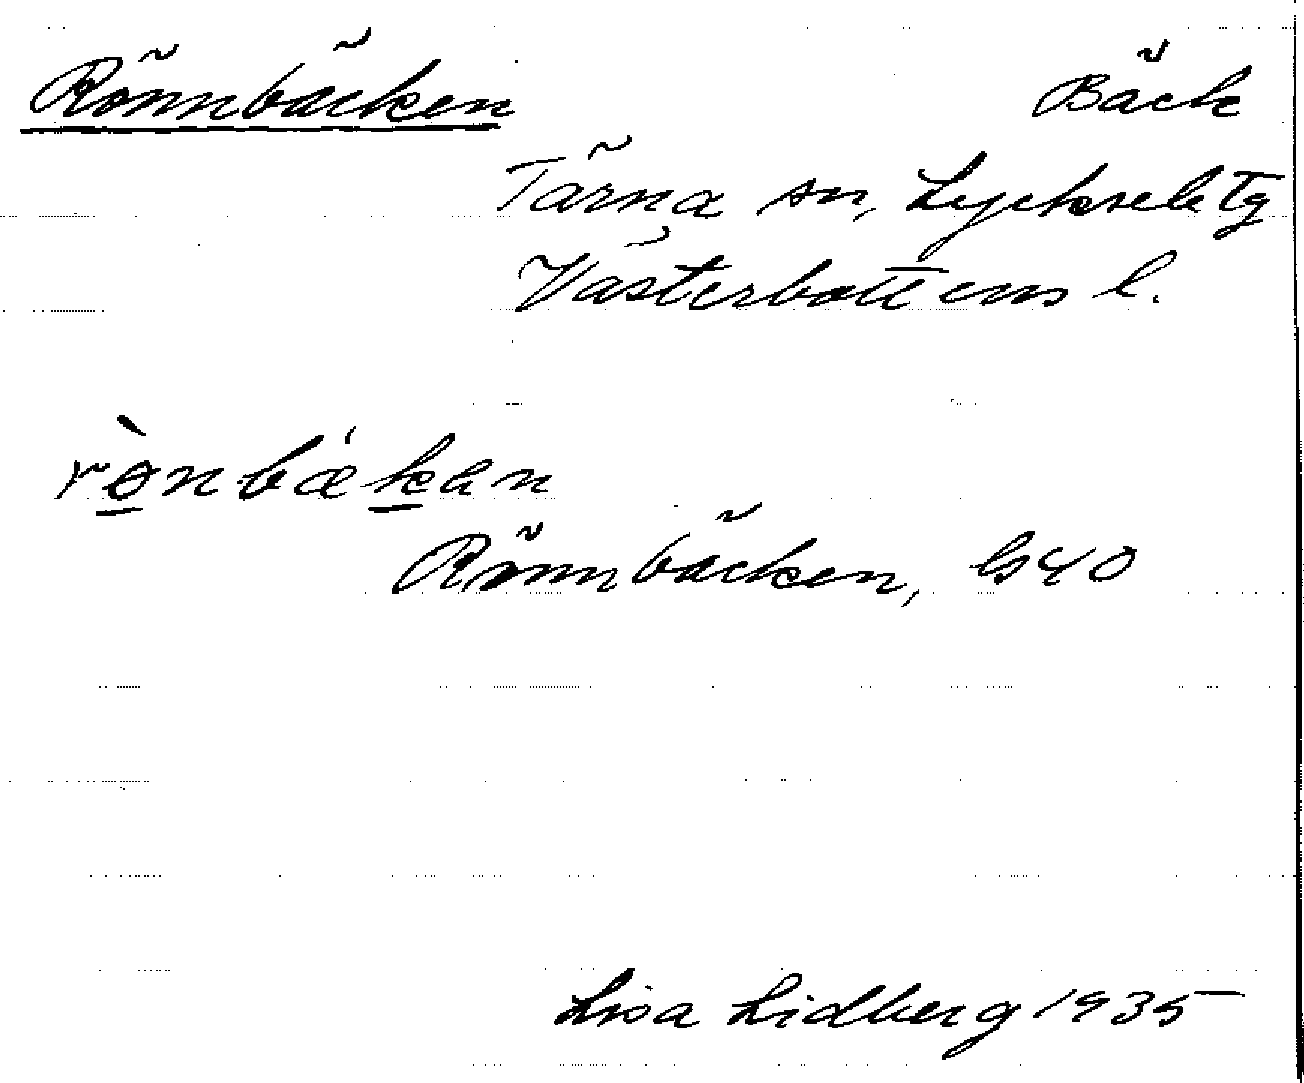 Rönnbäcken Bäck
Tärna sn, Lycksele tg
Västerbottens l.
rö̀nbǽkan
Rönnbäcken, GS 40
Lisa Lidberg 1935